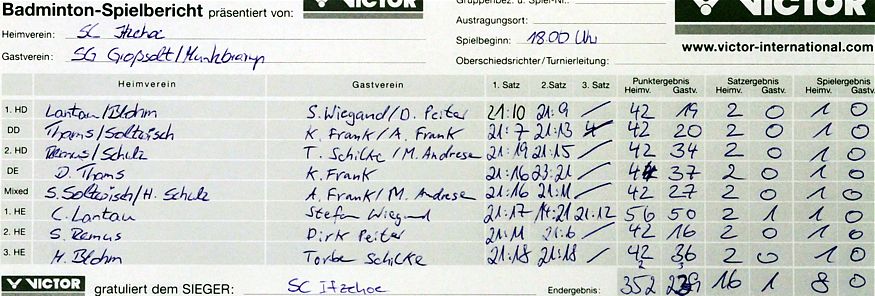 Badminton-Spielbericht präsentiert von: VICTOR
Gruppenbez. u. Spiel-Nr.:
VICTOR
Heimverein: SC Itzehoe
Austragungsort:
Gastverein: SG Großsolt/Munkbrarup
Spielbeginn: 18.00 Uhr
www.victor-international.com
Oberschiedsrichter/Turnierleitung:
Heimverein Gastverein 1. Satz 2.Satz 3. Satz Punktergebnis Heimv. Gastv. Satzergebnis Heimv. Gastv. Spielergebnis Heimv. Gastv.
1. HD Lantau/Blohm S. Wiegand/D. Peiter 21:10 21:9 / 42 19 2 0 1 0
DD Thams/Soltwisch K. Frank/A. Frank 21:7 21:13 42 20 2 0 1 0
2. HD Remus/Schulz T. Schilke/M. Andresen 21:19 21:15 / 42 34 2 0 1 0
DE D. Thams K. Frank 21:16 23:21 / 37 2 0 1 0
Mixed S. Soltwisch/H. Schulz A. Frank/M. Andresen 21:16 21:11 / 42 27 2 0 1 0
1. HE C. Lantau Stefan Wiegand 21:17 14:21 21:12 56 50 2 1 1 0
2. HE S. Remus Dirk Peiter 21:11 21:6 / 42 16 2 0 1 0
3. HE M. Blohm Torben Schilke 21:18 21:18 / 42 36 2 0 1 0
VICTOR gratuliert dem SIEGER: SC Itzehoe Endergebnis: 352 16 1 8 0